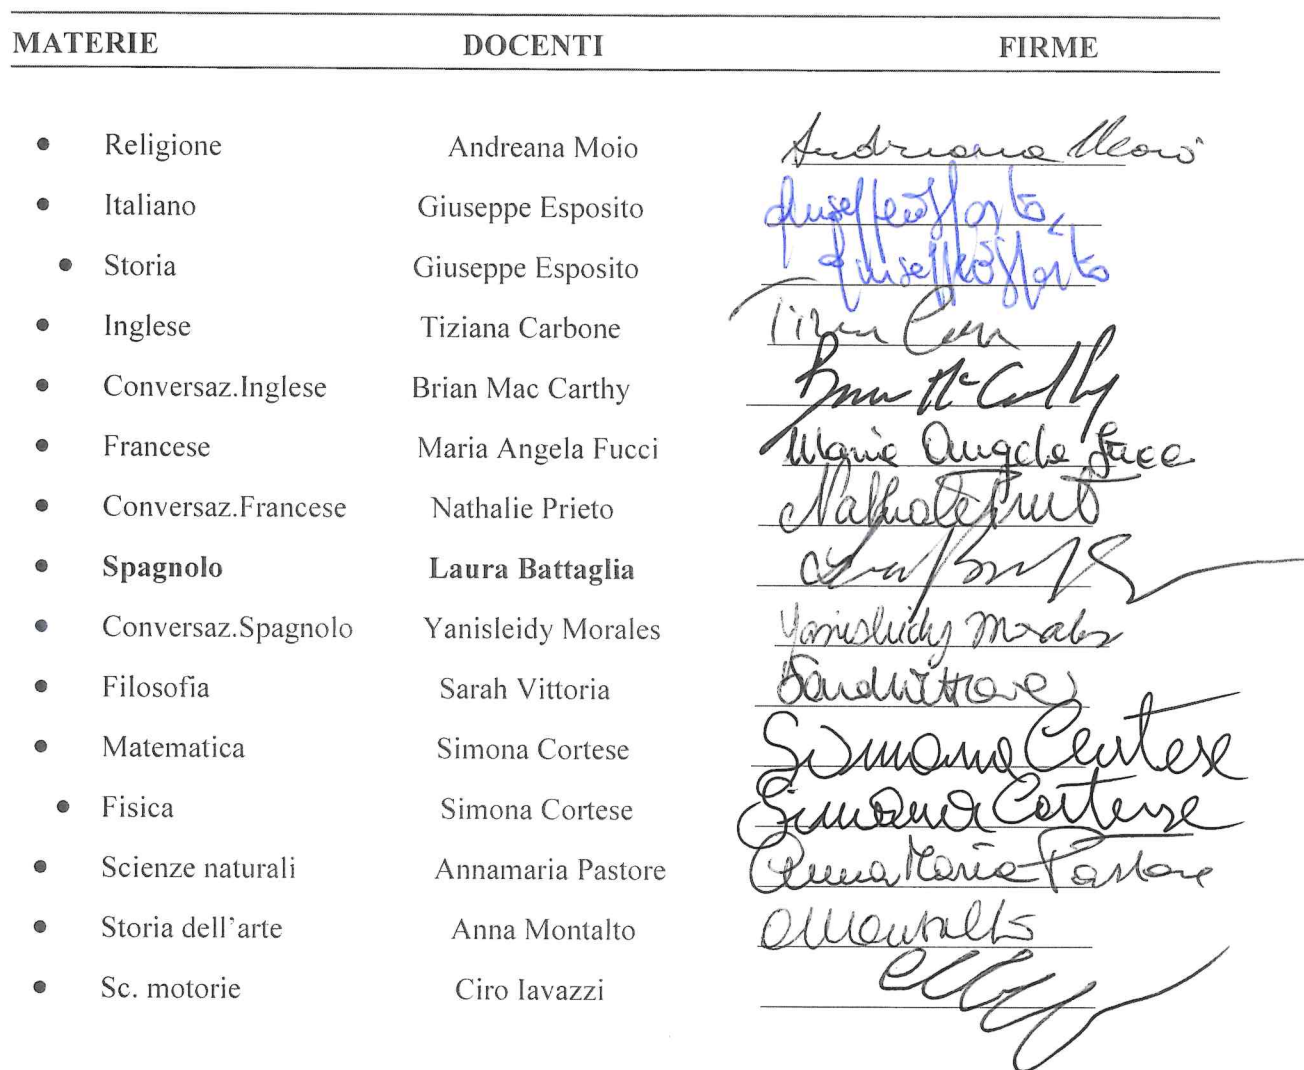 MATERIE DOCENTI FIRME
• Religione Andreana Moio Andreana Moio
• Italiano Giuseppe Esposito Giuseppe Esposito
• Storia Giuseppe Esposito Giuseppe Esposito
• Inglese Tiziana Carbone
• Conversaz.Inglese Brian Mac Carthy Brian Mc Carthy
• Francese Maria Angela Fucci Maria Angela Fucci
• Conversaz.Francese Nathalie Prieto Nathalie Prieto
• Spagnolo Laura Battaglia
• Conversaz.Spagnolo Yanisleidy Morales Yanisleidy Morales
• Filosofia Sarah Vittoria
• Matematica Simona Cortese Simona Cortese
• Fisica Simona Cortese Simona Cortese
• Scienze naturali Annamaria Pastore Anna Maria Pastore
• Storia dell'arte Anna Montalto AMontalto
• Sc. motorie Ciro Iavazzi